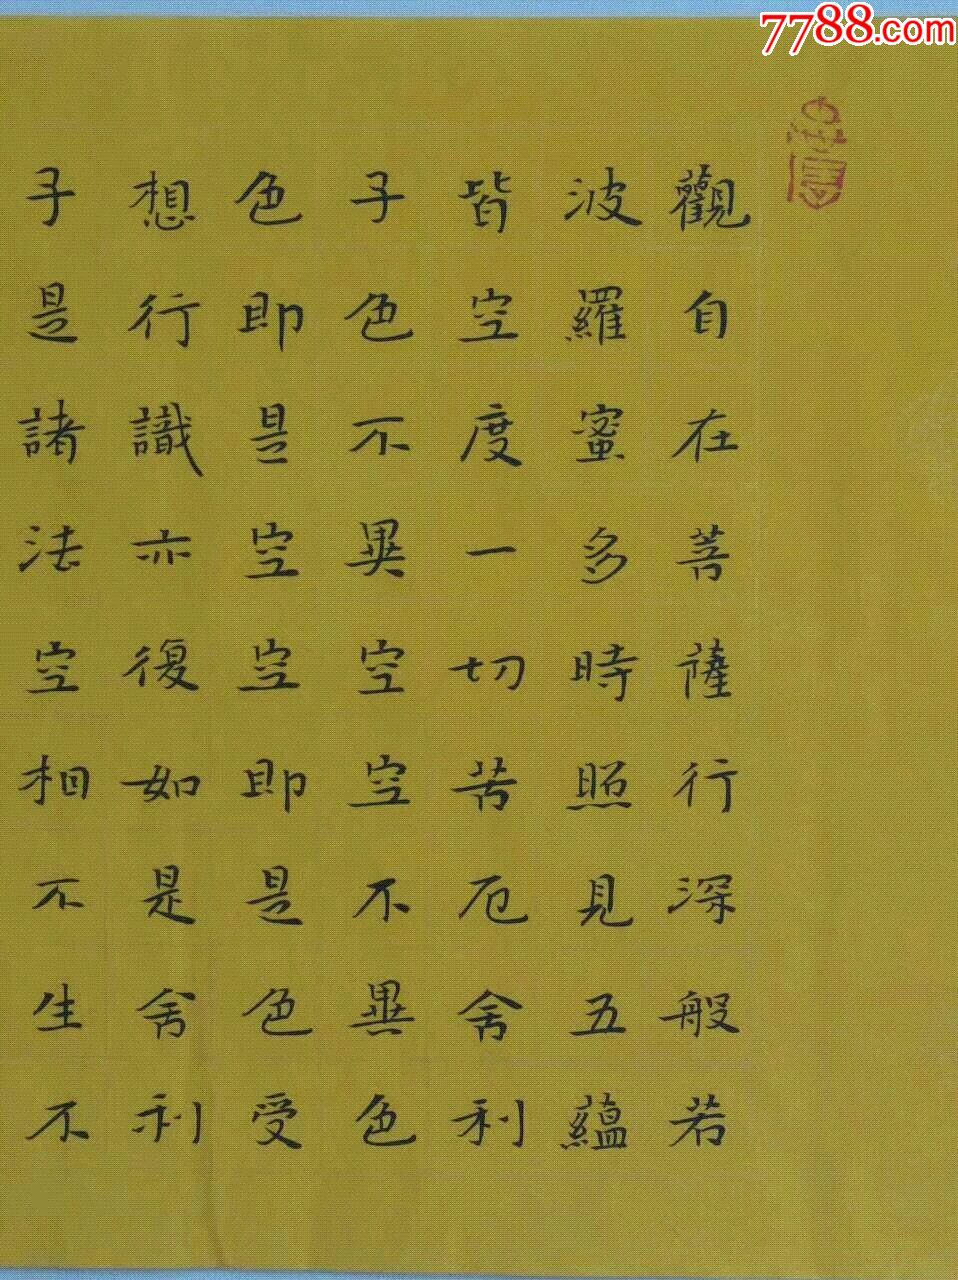 7788.com
觀自在菩薩行深般若
波羅蜜多時照見五蘊
皆空度一切苦厄舍利
子色不異空空不異色
色即是空空即是色受
想行識亦復如是舍利
子是諸法空相不生不